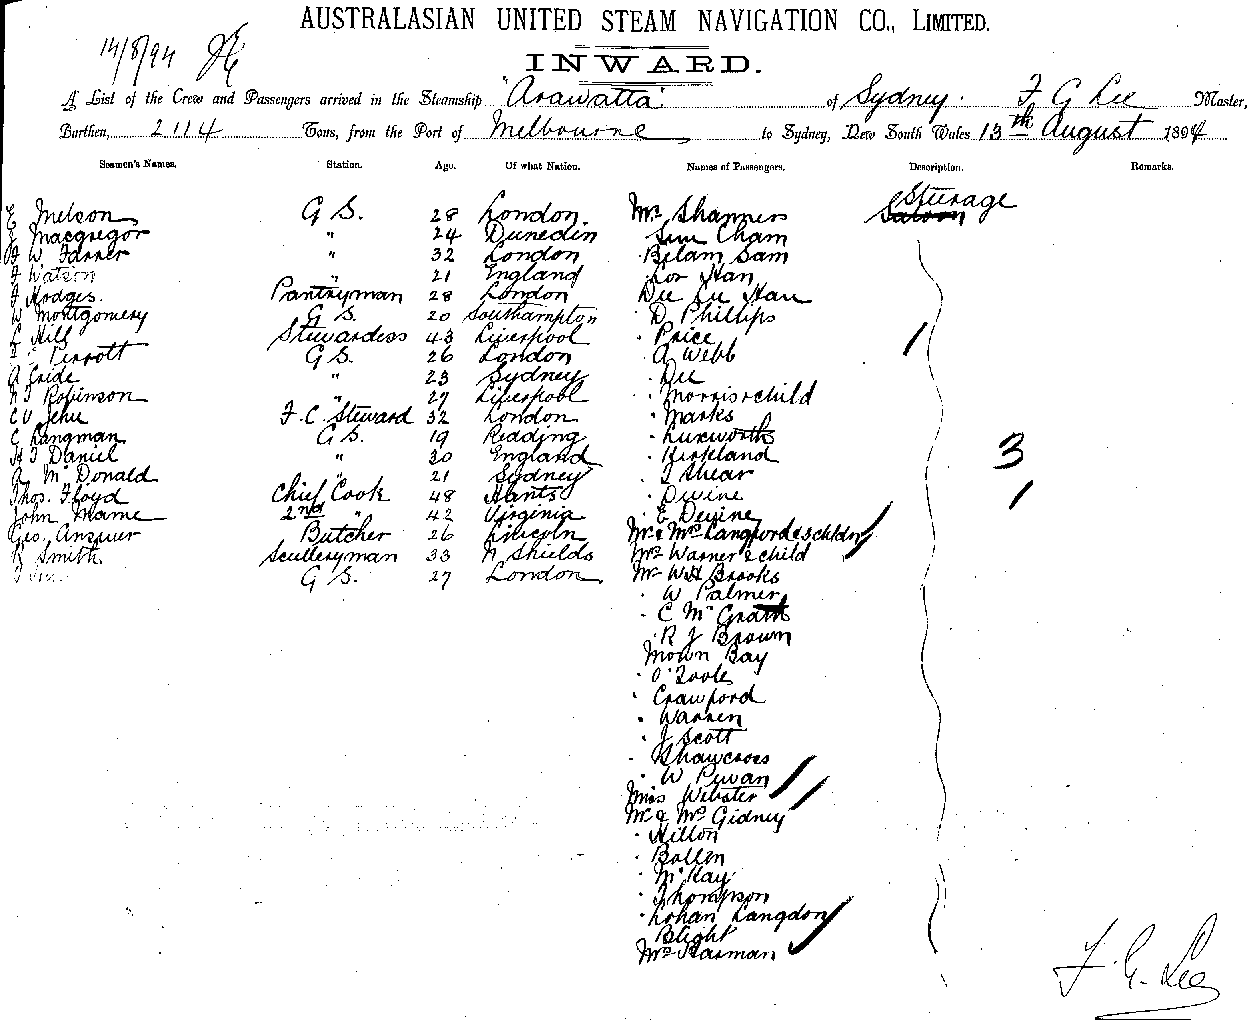 AUSTRALASIAN UNITED STEAM NAVIGATION CO., LIMITED.
14/8/94
INWARD.
A List of the Crew and Passengers arrived in the Steamship "Arawatta" of Sydney. F G Lee Master,
Burthen, 2114 Tons, from the Port of Melbourne to Sydney, New South Wales 13th August 1894
Seamen's Names. Station. Age. Of what Nation. Names of Passengers. Description. Remarks.
E Melson G S. 28 London. Mrs Shanners Saloon Steerage
Macgregor " 24 Dunedin Sun Cham
W Farrer " 32 London Belam Sam
F Watson " 21 England Lor Han
F Hodges. Pantryman 28 London Dee Lee Hau
W Montgomery G S. 20 Southampton D. Phillips
Hill Stewardess 43 Liverpool Price
Perrott G S. 26 London A Webb
A Eride " 23 Sydney Dee
Robinson " 27 Liverpool Morris & child
Jehu F. C. Steward 32 London Marks
C Langman G S. 19 Redding Luxworth
H J Daniel " 30 England Kirkland 3
A McDonald " 21 Sydney J Shear
Thos. Floyd Chief Cook 48 Hants Devine
John Mame 2nd " 42 Virginia E Devine
Geo. Butcher 26 Lincoln Mr & Mrs Langford & 5 chldn
R Smith Sculleryman 33 N Shields Mrs Warner & child
G S. 27 London Mr W H Brooks
W Palmer
C McGrath
R J Brown
Mown Bay
O'Toole
Crawford
Warren
J Scott
Shawcross
W Pewan
Miss Webster
Mr & Mrs Gidney
Hilton
Bollen
McKay
Thompson
Lohan Langdon
Blight
Mrs Harman
F. G. Lee